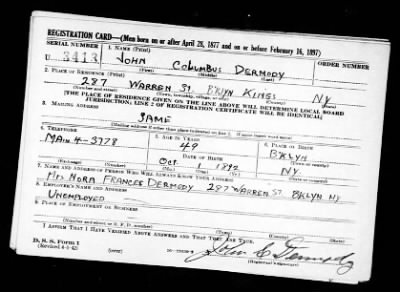 REGISTRATION CARD—(Men born on or after April 28, 1877 and on or before February 16, 1897)
SERIAL NUMBER
1. NAME (Print)
ORDER NUMBER
U 3413
JOHN COLUMBUS DERMODY
(First) (Middle) (Last)
2. PLACE OF RESIDENCE (Print)
287 WARREN ST. BKLYN KINGS NY
(Number and street) (Town, township, village, or city) (County) (State)
[THE PLACE OF RESIDENCE GIVEN ON THE LINE ABOVE WILL DETERMINE LOCAL BOARD
JURISDICTION; LINE 2 OF REGISTRATION CERTIFICATE WILL BE IDENTICAL]
3. MAILING ADDRESS
SAME
[Mailing address if other than place indicated on line 2. If same insert word same]
4. TELEPHONE
5. AGE IN YEARS
6. PLACE OF BIRTH
MAIN 4-3778
49
BKLYN
DATE OF BIRTH
(Town or county)
OCT 1 1892
NY
(Exchange) (Number)
(Mo.) (Day) (Yr.)
(State or country)
7. NAME AND ADDRESS OF PERSON WHO WILL ALWAYS KNOW YOUR ADDRESS
MRS NORA FRANCES DERMODY 287 WARREN ST. BKLYN NY
8. EMPLOYER'S NAME AND ADDRESS
UNEMPLOYED
9. PLACE OF EMPLOYMENT OR BUSINESS
(Number and street or R. F. D. number) (Town) (County) (State)
I AFFIRM THAT I HAVE VERIFIED ABOVE ANSWERS AND THAT THEY ARE TRUE.
D. S. S. Form 1
(Revised 4-1-42)
(over)
John C Dermody